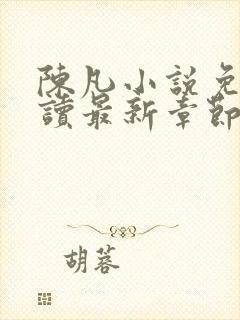 陳凡小說免
讀最新章節
胡蓉